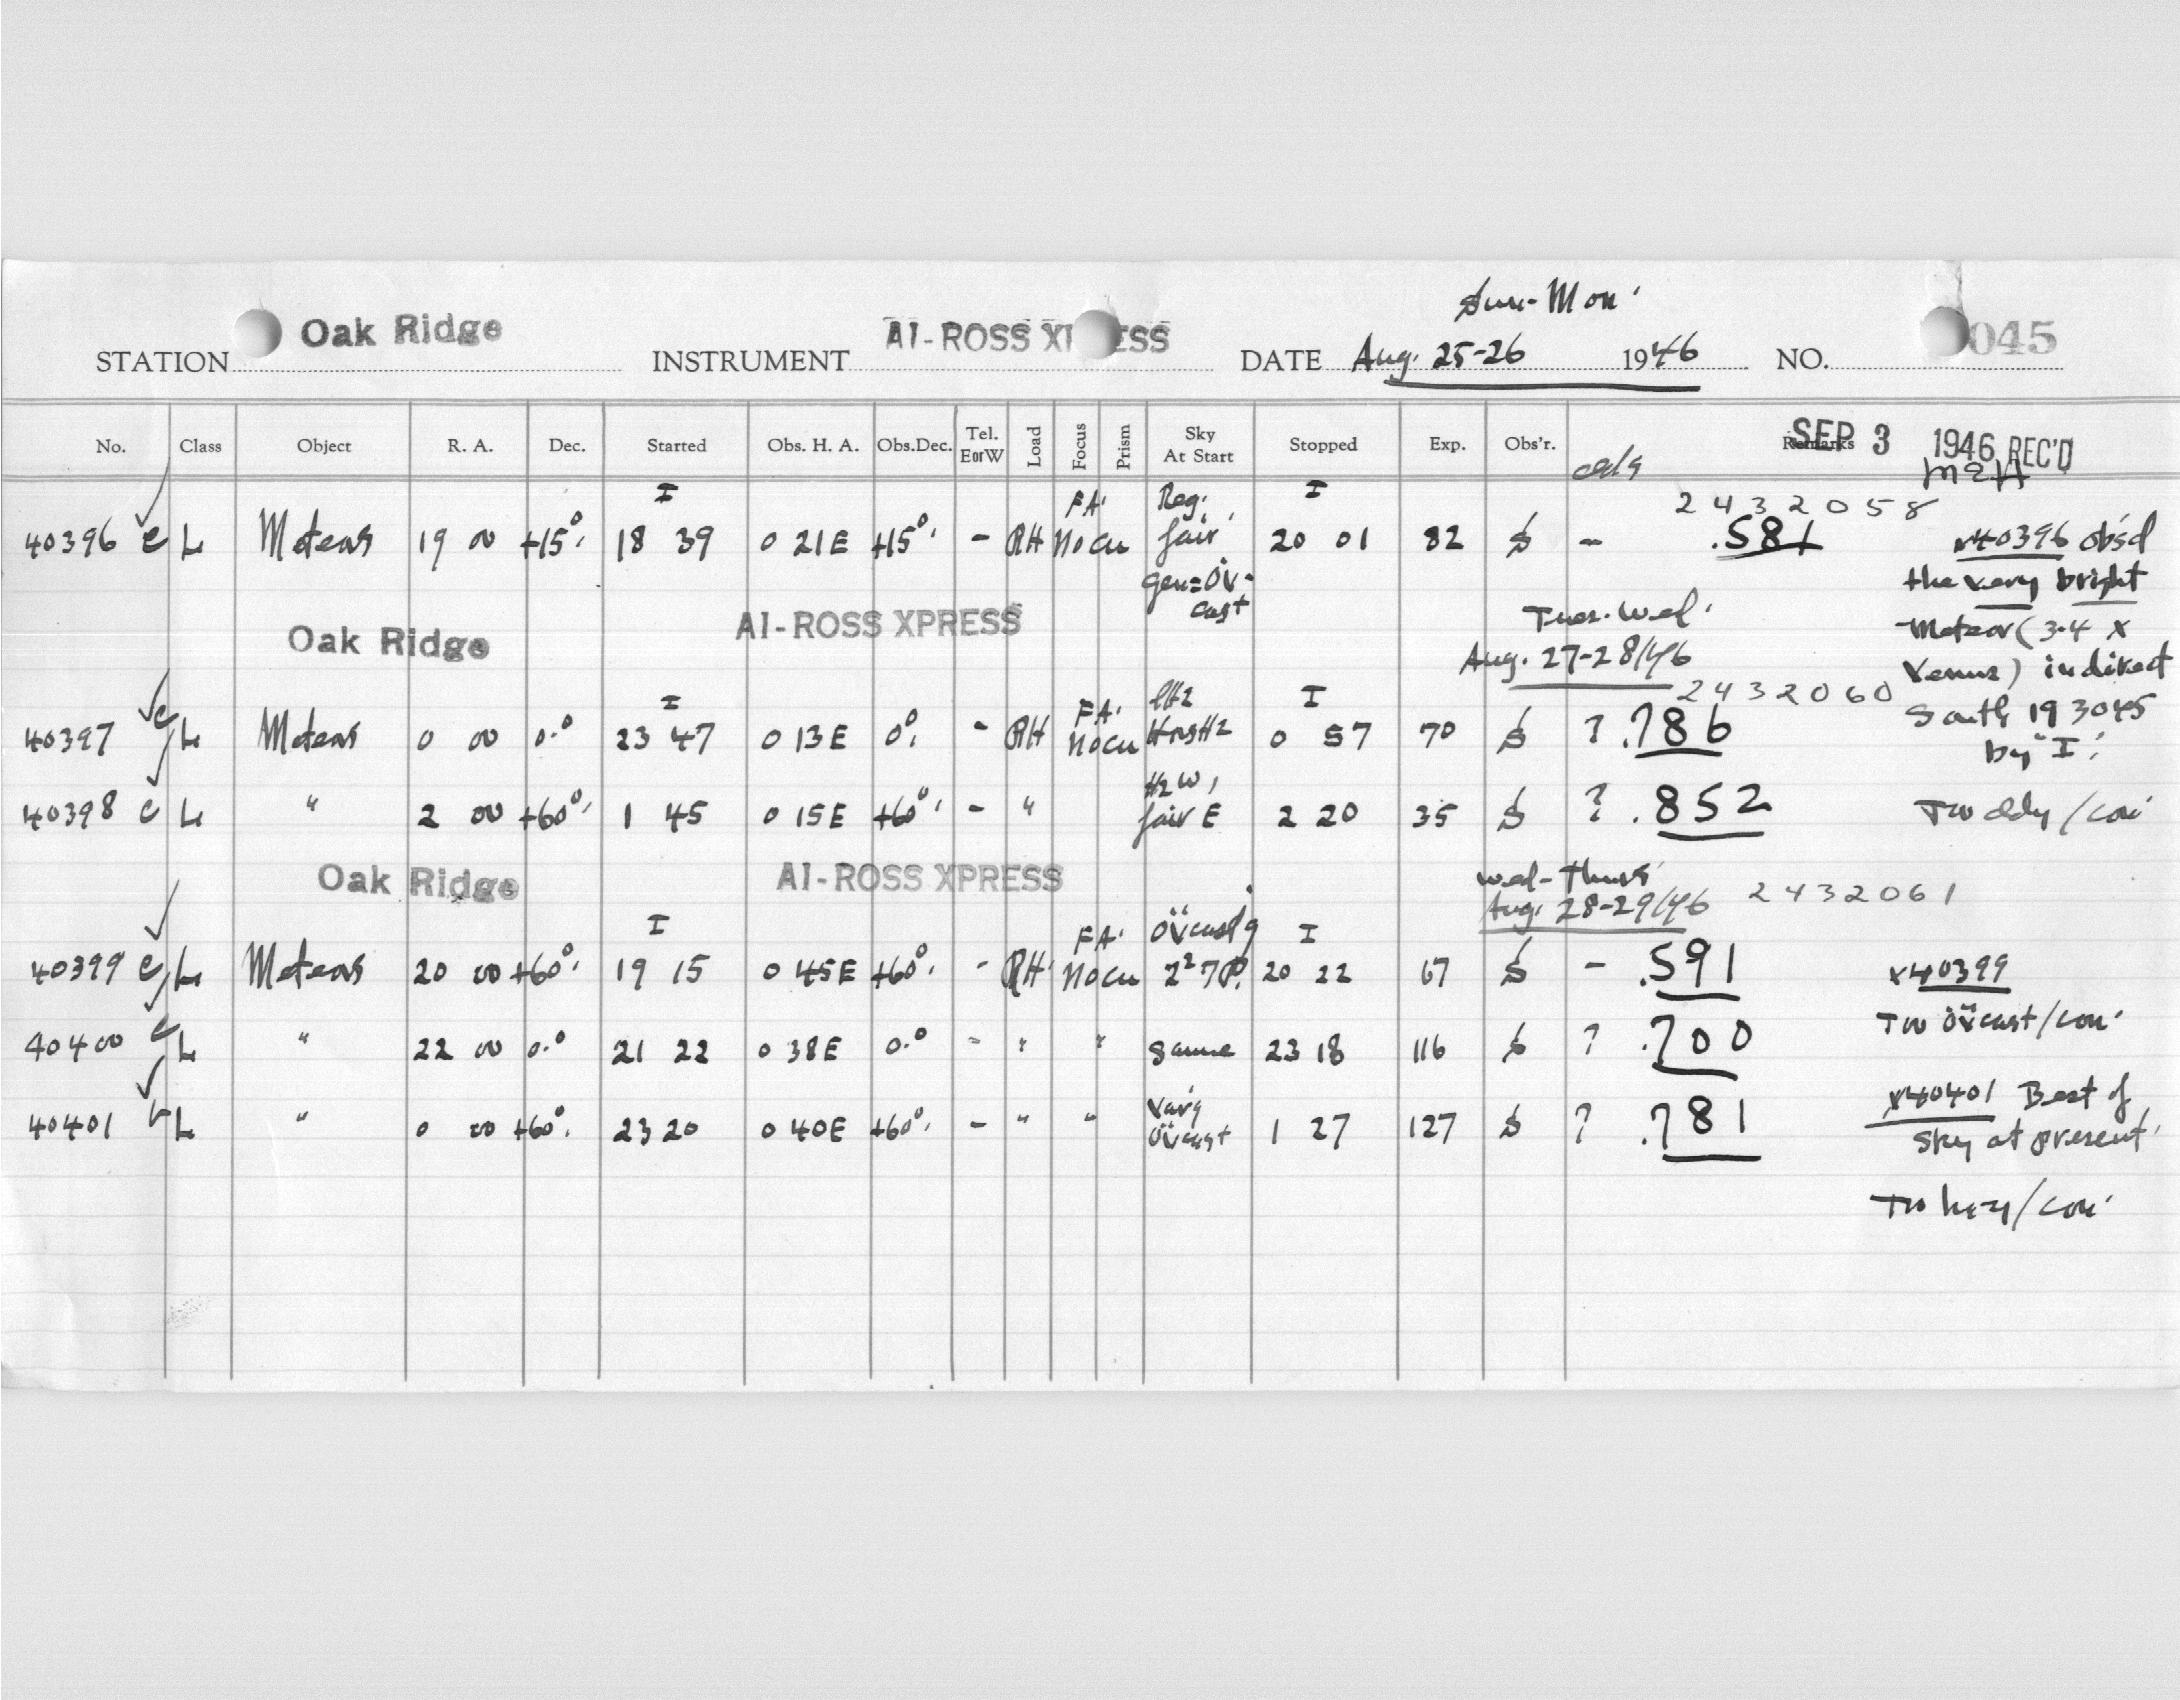 Sun-Mon.
STATION Oak Ridge INSTRUMENT AI-ROSS XPRESS DATE Aug. 25-26 1946 NO. 045
No. Class Object R. A. Dec. Started Obs. H. A. Obs.Dec. Tel. EorW Load Focus Prism Sky At Start Stopped Exp. Obs'r. Remarks
SEP 3 1946 REC'D
I FA. Reg. I 2432058
40396 L Meteors 19 00 +15° 18 39 0 21E +15° - RH Nocu fair 20 01 82 S - .581 x40396 obs'd
gen=öv- the very bright
cast
Oak Ridge AI-ROSS XPRESS Tues-Wed. Meteor (3-4 x
Aug. 27-28/46 Venus) in direct
I FA. I 2432060 South 193045
40397 L Meteors 0 00 0.° 23 47 0 13E 0° - RH Nocu 0 57 70 S ? .786 by "I".
HzW,
40398 c L " 2 00 +60° 1 45 0 15E +60° - " fair E 2 20 35 S ? .852 Two cldy/con
Oak Ridge AI-ROSS XPRESS Wed-Thurs
Aug. 28-29/46 2432061
I FA. övcastg I
40399 c L Meteors 20 00 +60° 19 15 0 45E +60° - RH Nocu 20 22 67 S - .591 x40399
Two övcast/con.
40400 c L " 22 00 0.° 21 22 0 38E 0.° - " " same 23 18 116 S ? .700
Varg x40401 Best of
40401 L " 0 00 +60° 23 20 0 40E +60° - " " övcast 1 27 127 S ? .781 sky at present.
Two hzy/con.